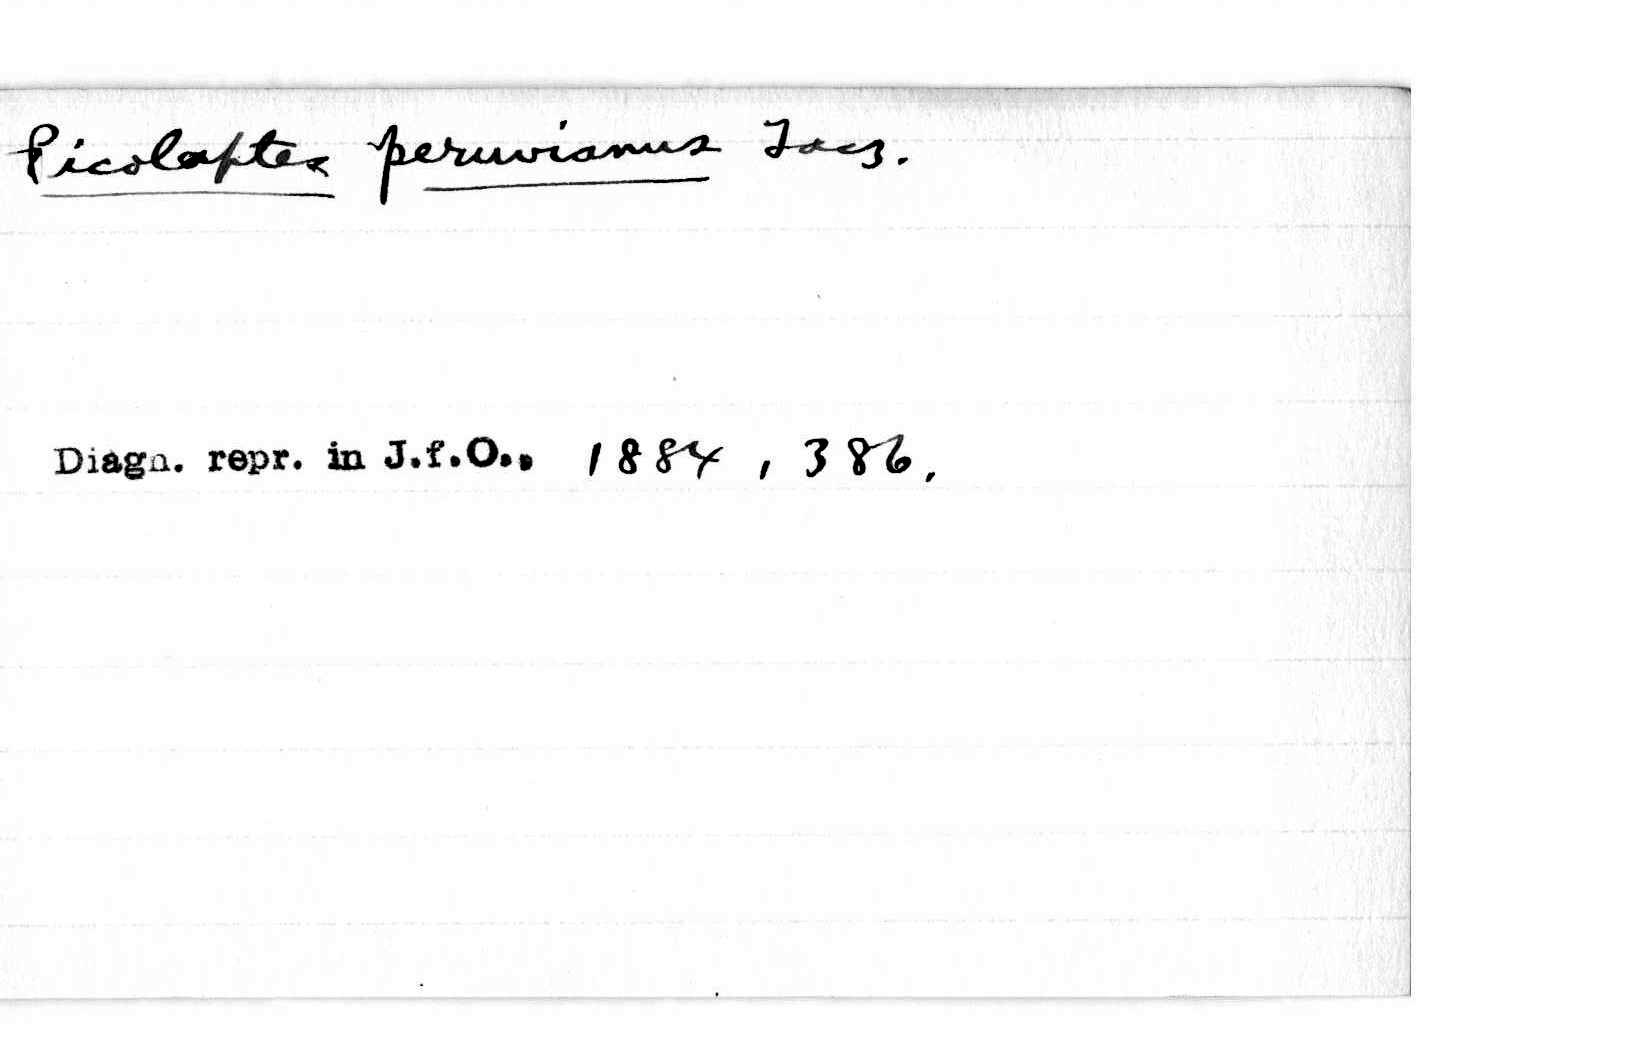 Picolaptes peruvianus Tacz.
Diagn. repr. in J.f.O., 1884, 386.